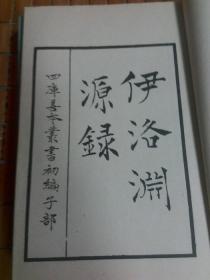 伊洛淵
源錄
四庫善本叢書初編子部